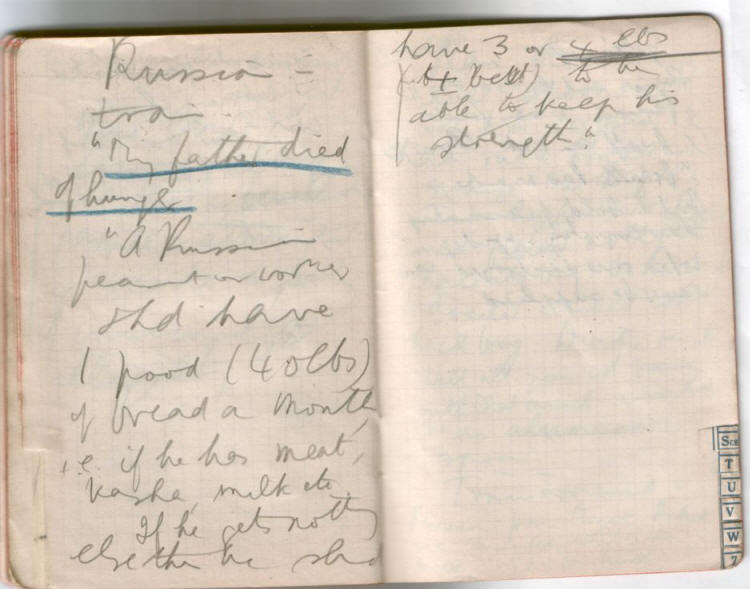 Russian -
train.
"My father died
of hunger.
"A Russian
peasant or worker
shd have
1 pood (40lbs)
of bread a month
i.e. if he has meat,
kasha, milk etc.
If he gets nothg
else then he shd
have 3 or 4 lbs
to be
able to keep his
strength."
Sch
T
U
V
W